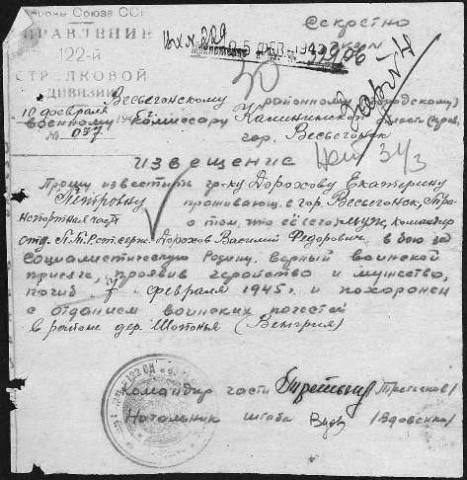 Союза ССР
УПРАВЛЕНИЕ
122-й
СТРЕЛКОВОЙ
ДИВИЗИИ
10 февраля
№ 077
Вх № 229
Секретно
Весьегонскому районному (городскому)
военному комиссару Калининской области
гор. Весьегонск
Извещение
Прошу известить гр-ку Дорохову Екатерину
Петровну проживающ. в гор. Весьегонск, Тра-
нспортная часть о том, что её (его) муж, командир
отд. П.Т.Р. ст. серж. Дорохов Василий Федорович в бою за
Социалистическую Родину, верный воинской
присяге, проявив геройство и мужество,
погиб 7 февраля 1945 г. и похоронен
с отданием воинских почестей
в районе дер. Шопонья (Венгрия)
Командир части /Третьяков/
Начальник штаба /Вдовенко/